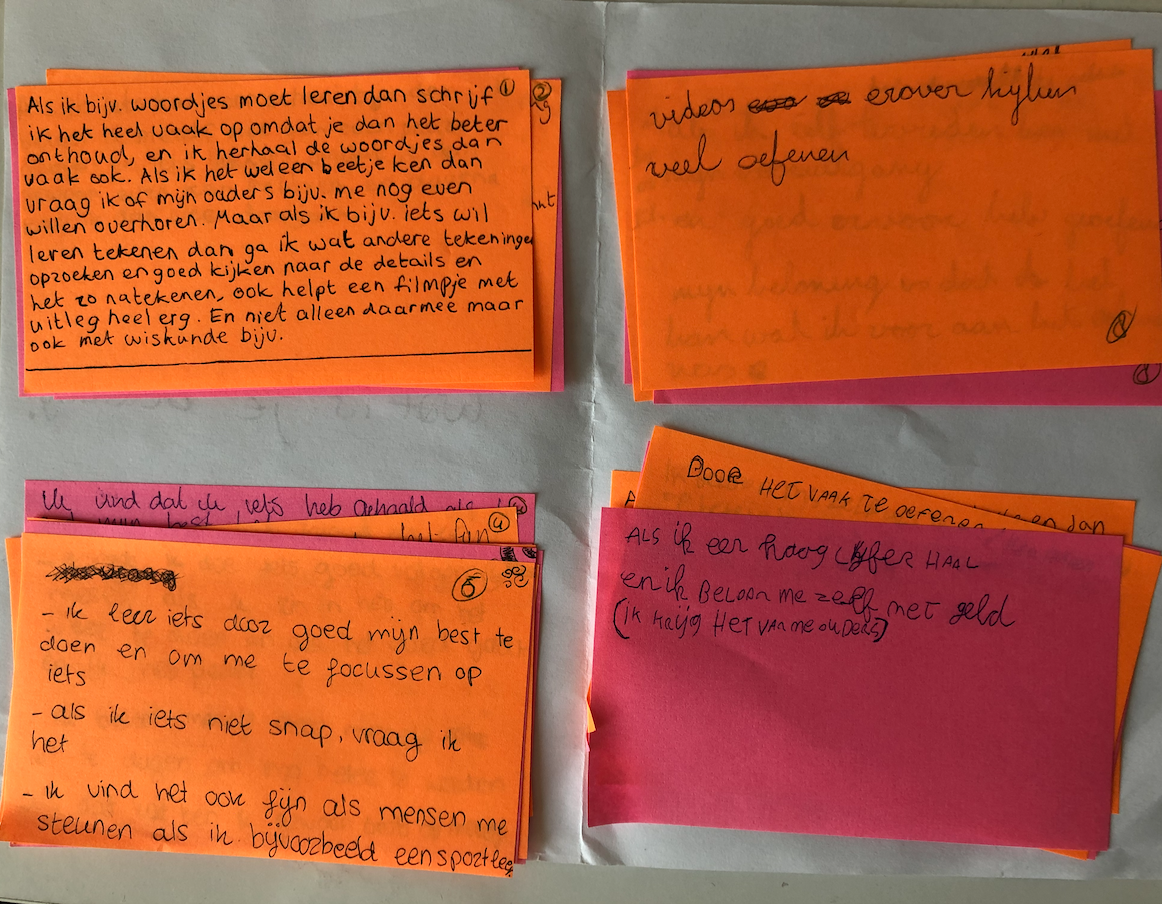 Als ik bijv. woordjes moet leren dan schrijf ①
ik het heel vaak op omdat je dan het beter
onthoud, en ik herhaal de woordjes dan
vaak ook. Als ik het wel een beetje ken dan
vraag ik of mijn ouders bijv. me nog even
willen overhoren. Maar als ik bijv. iets wil
leren tekenen dan ga ik wat andere tekeningen
opzoeken en goed kijken naar de details en
het zo natekenen, ook helpt een filmpje met
uitleg heel erg. En niet alleen daarmee maar
ook met wiskunde bijv.
②
videos erover kijken
veel oefenen
Ik vind dat ik iets heb gehaald als
④
⑤
- ik leer iets door goed mijn best te
doen en om me te focussen op
iets
- als ik iets niet snap, vraag ik
het
- ik vind het ook fijn als mensen me
steunen als ik bijvoorbeeld een sport leer
Door HET VAAK TE oefenen
en dan
ALS ik een hoog cijfer HAAL
en ik BELOON me zelf met geld
(IK KRIJG HET VAN ME OUDERS)